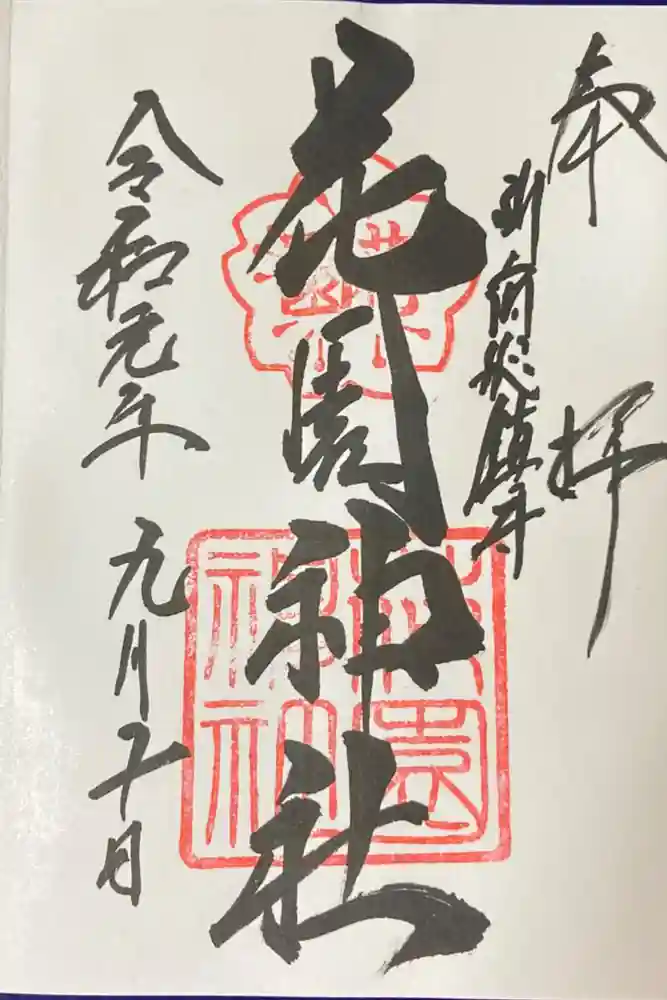 奉拝
新宿総鎮守
花園神社
令和元年
九月十日
花園神社